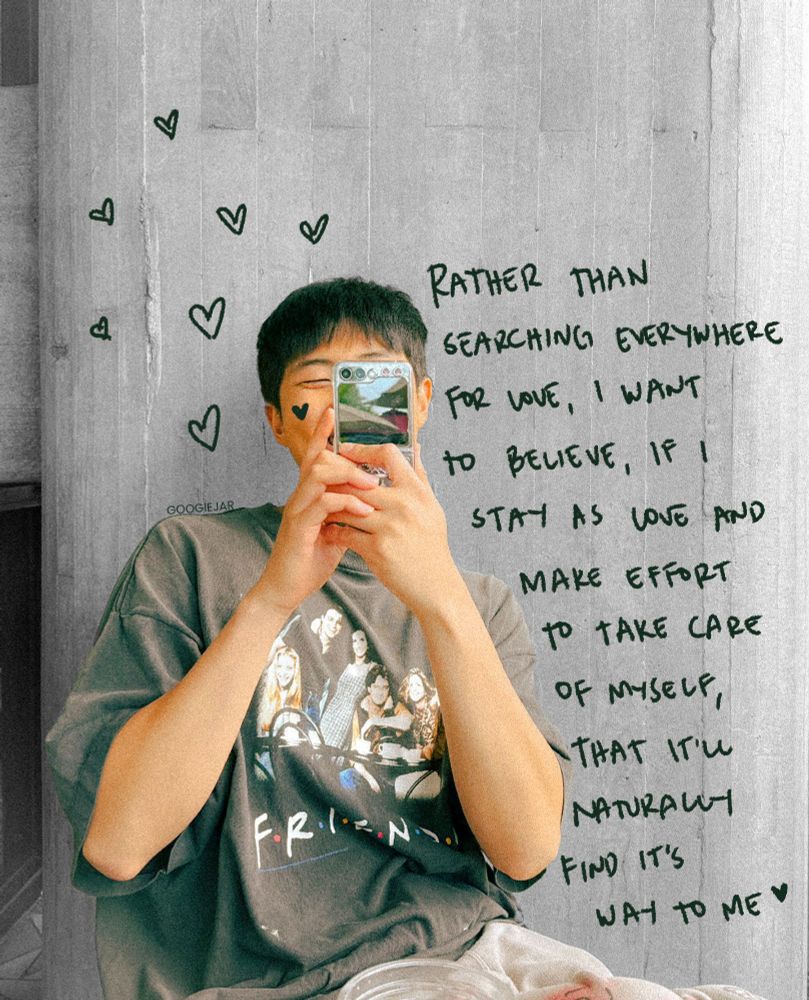 RATHER THAN
SEARCHING EVERYWHERE
FOR LOVE, I WANT
TO BELIEVE, IF I
STAY AS LOVE AND
MAKE EFFORT
TO TAKE CARE
OF MYSELF,
THAT IT'LL
NATURALLY
FIND IT'S
WAY TO ME
GOOGIEJAR
F.R.I.E.N.D.